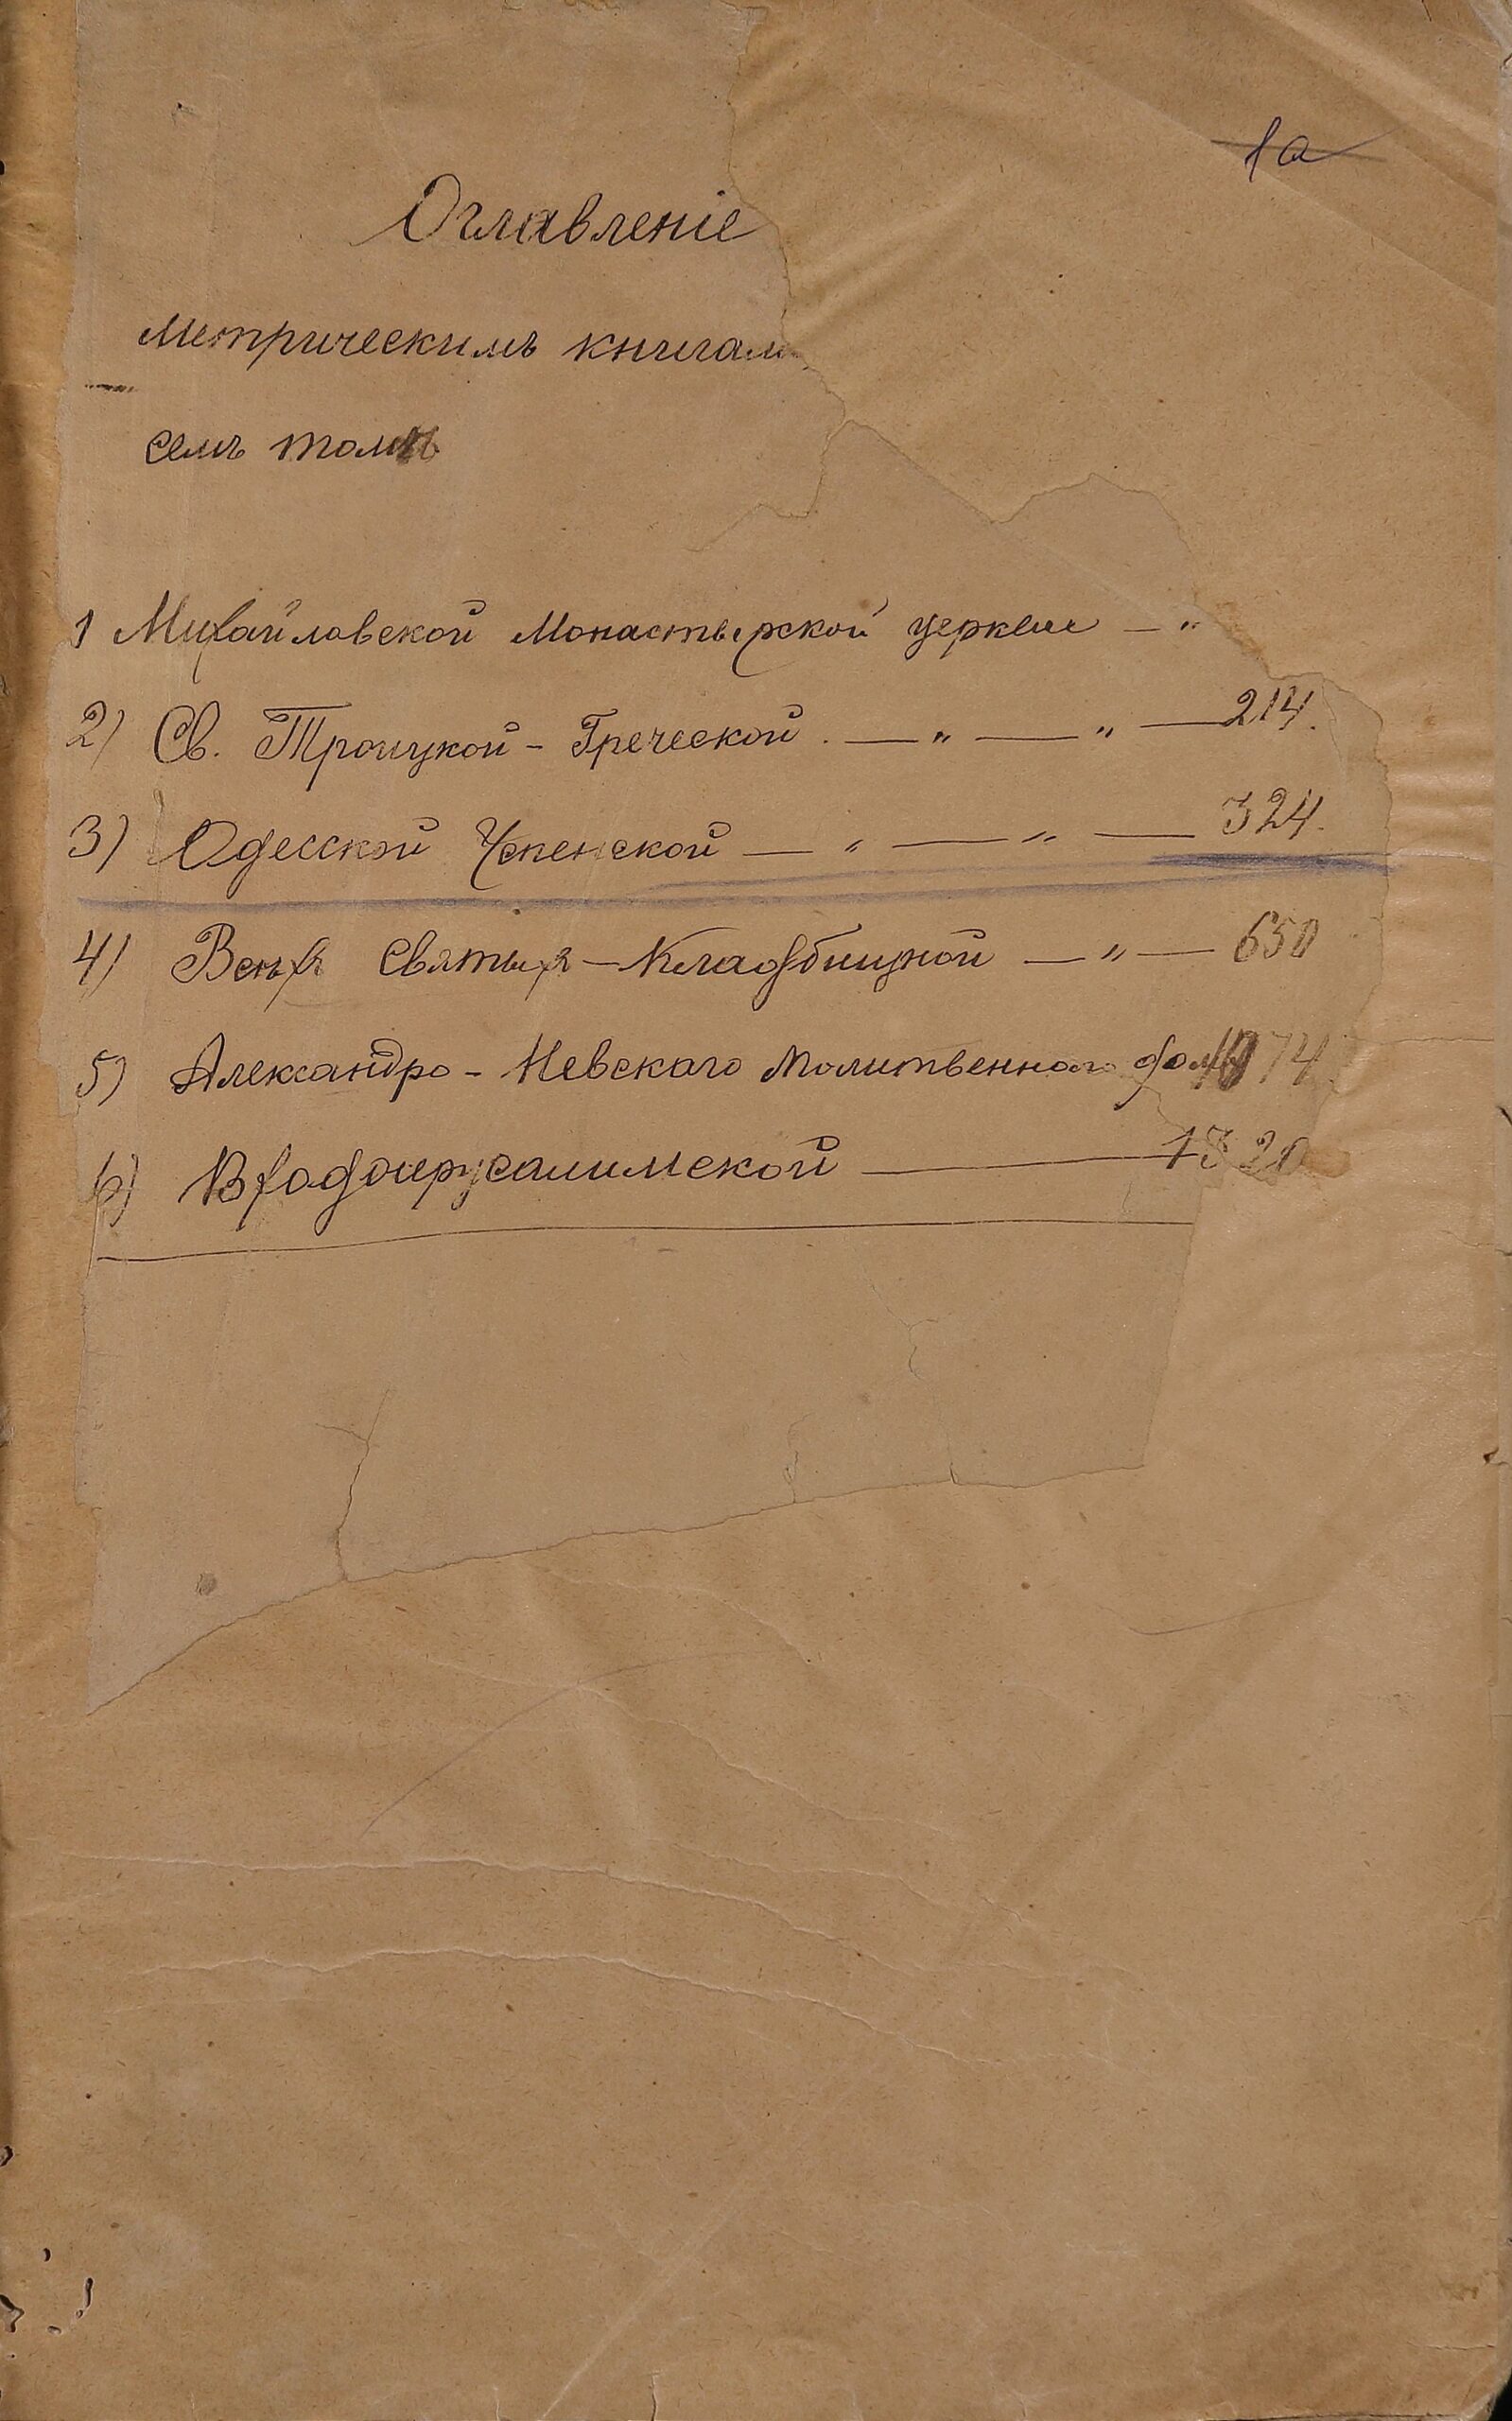 1а
Оглавленіе
метрическимъ книгам
семъ томѣ
1 Михайловской Монастырской церкви — "
2) Св. Троицкой - Греческой . — " — " — 214.
3) Одесской Успенской — " — " — 324.
4) Всѣхъ Святыхъ - Кладбищной — " — 650
5) Александро - Невскаго Молитвенного дома 1074
6) Входоіерусалимской — 1320